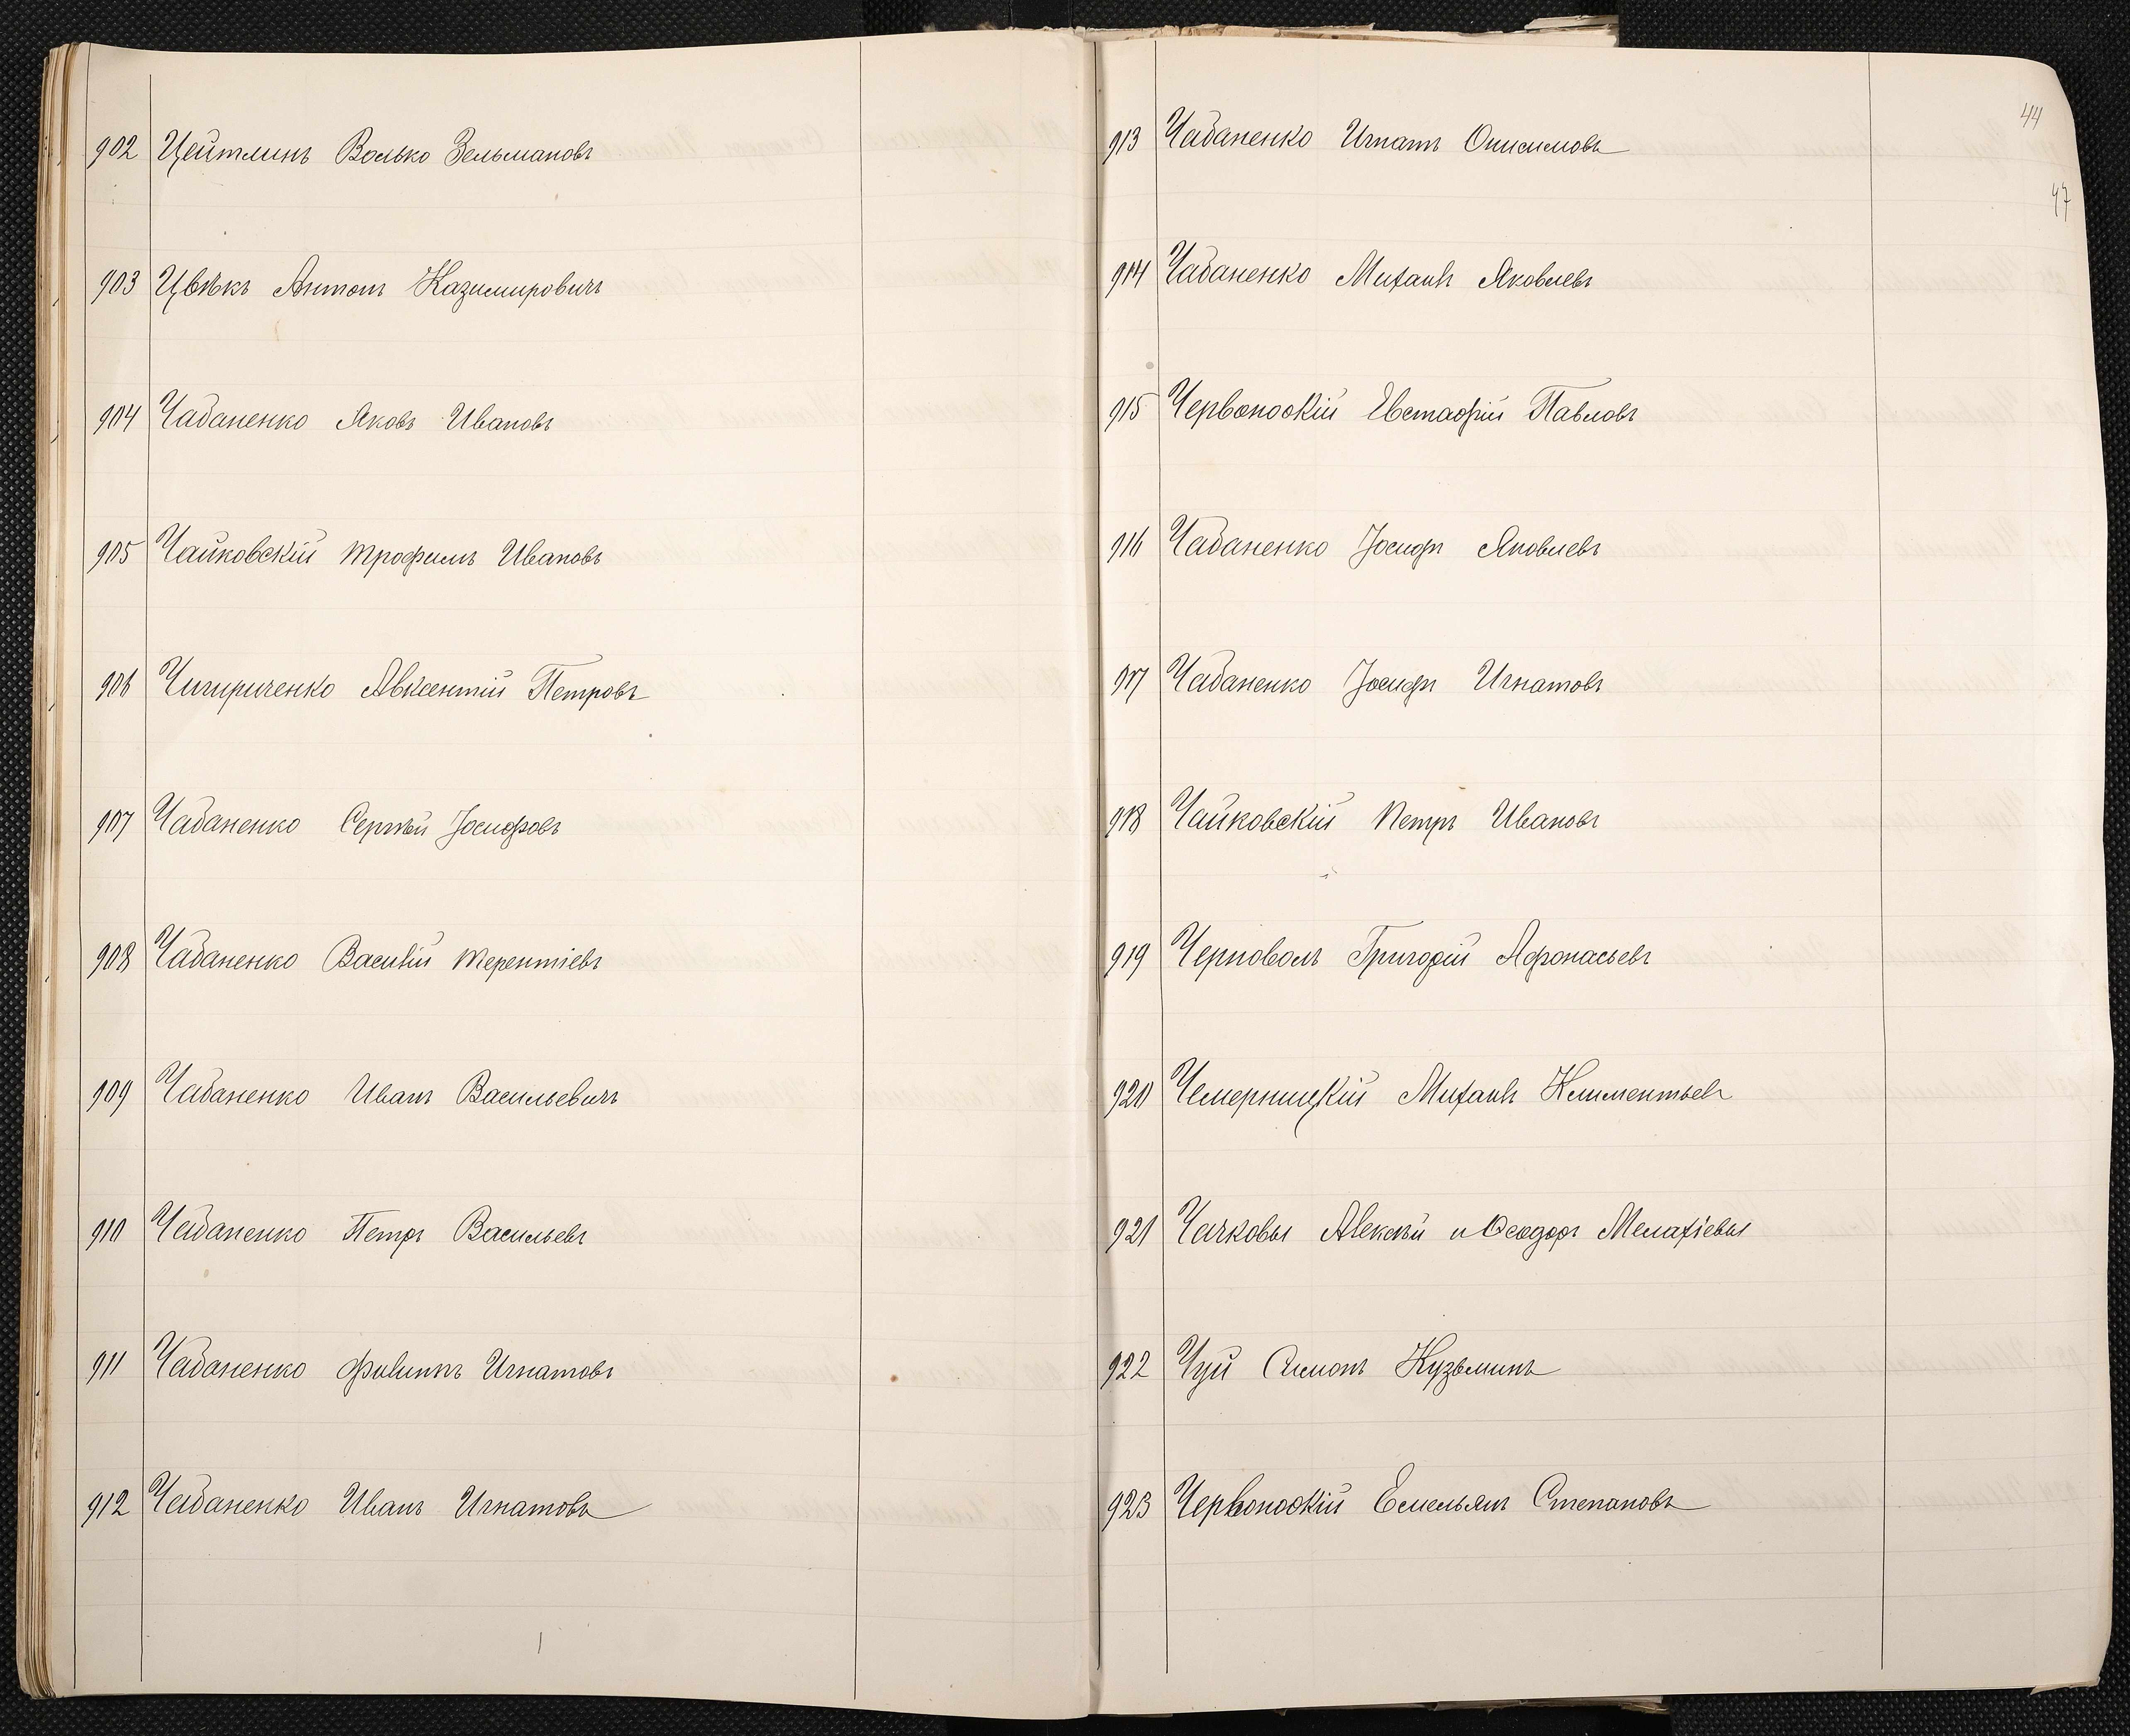 902 Цейтлинъ Волько Зельмановъ
903 Цвѣкъ Антонъ Казимировичъ
904 Чабаненко Яковъ Ивановъ
905 Чайковскій Трофимъ Ивановъ
906 Чигириченко Авксентій Петровъ
907 Чабаненко Сергѣй Іосифовъ
908 Чабаненко Василій Терентіевъ
909 Чабаненко Иванъ Васильевичъ
910 Чабаненко Петръ Васильевъ
911 Чабаненко Филиппъ Игнатовъ
912 Чабаненко Иванъ Игнатовъ
44
47
913 Чабаненко Игнатъ Онисимовъ
914 Чабаненко Михаилъ Яковлевъ
915 Червоноокій Евстафій Павловъ
916 Чабаненко Іосифъ Яковлевъ
917 Чабаненко Іосифъ Игнатовъ
918 Чайковскій Петръ Ивановъ
919 Черноволъ Григорій Афонасьевъ
920 Чемерницкій Михаилъ Климентьевъ
921 Чачковы Алексѣй и Ѳеодоръ Мелахіевы
922 Чуй Симонъ Кузьминъ
923 Червоноокій Емельянъ Степановъ